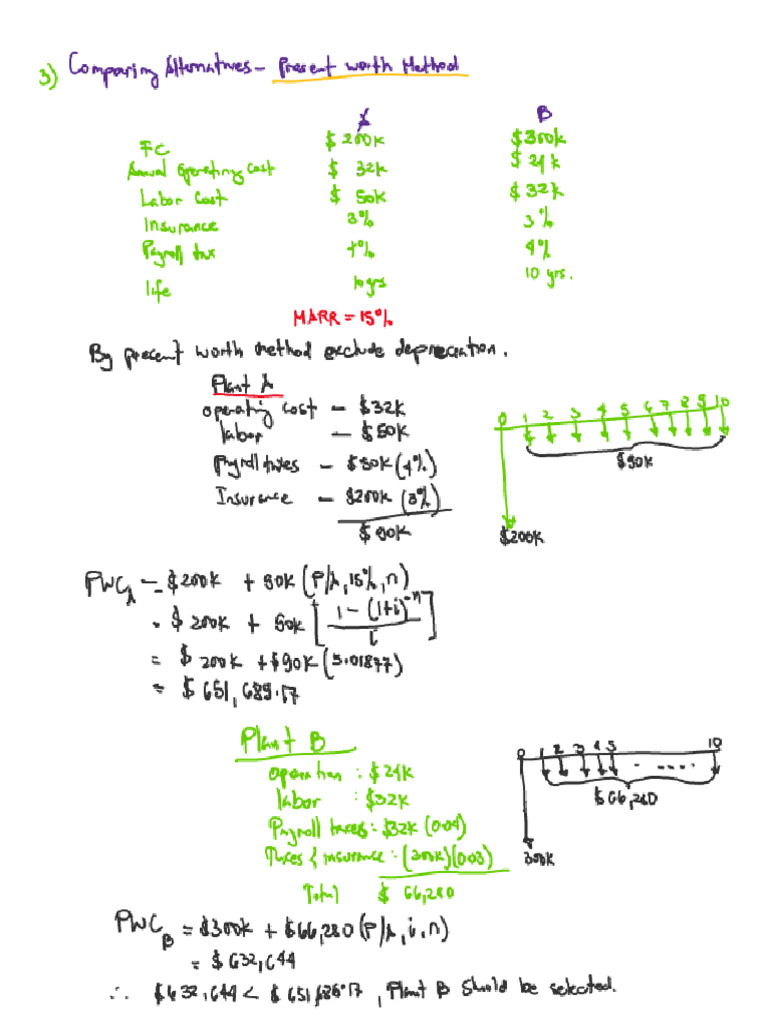 3) Comparing Alternatives – Present worth Method
A B
FC $ 200K $300K
Annual Operating Cost $ 32K $ 24K
Labor Cost $ 50K $ 32K
Insurance 3% 3%
Payroll tax 4% 4%
life 10 yrs 10 yrs.
MARR = 15%
By present worth method exclude depreciation.
Plant A
operating cost – $32K
labor – $50K
Payroll taxes – $50K (4%)
Insurance – $200K (3%)
$ 90K
0 1 2 3 4 5 6 7 8 9 10
$90K
$200K
PWC_A = $200K + 90K (P/A, 15%, n)
= $ 200K + 90K [ 1 – (1+i)^-n / i ]
= $ 200K + $90K (5.01877)
= $ 651,689.17
Plant B
operation : $ 24K
labor : $32K
Payroll taxes : $32K (0.04)
Taxes & insurance : (300K)(0.03)
Total $ 66,280
0 1 2 3 4 5 10
. ....
$ 66,280
300K
PWC_B = $300K + $66,280 (P/A, i, n)
= $ 632,644
∴ $632,644 < $ 651,689.17 , Plant B should be selected.